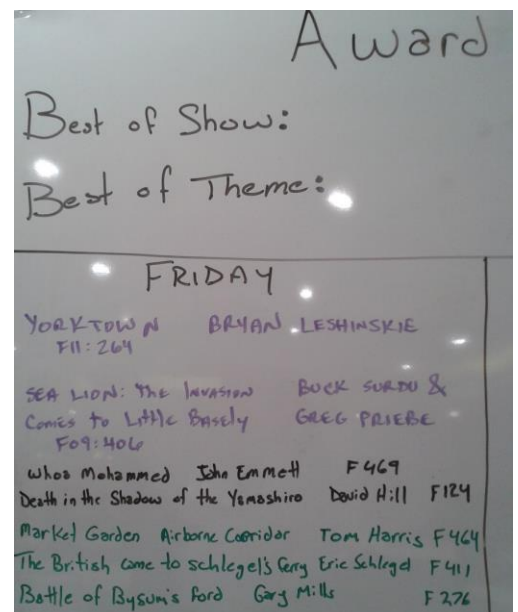 Award
Best of Show:
Best of Theme:
FRIDAY
YORKTOWN BRYAN LESHINSKIE
F11:264
SEA LION: The INVASION BUCK SURDU &
Comes to Little Basely GREG PRIEBE
F09:406
Whoa Mohammed John Emmett F469
Death in the Shadow of the Yamashiro David Hill F124
Market Garden Airborne Cooridor Tom Harris F464
The British come to schlegel's Ferry Eric Schlegel F411
Battle of Bysum's Ford Gary Mills F276